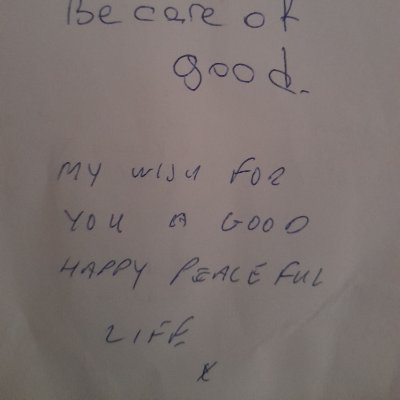 Be care of
good.
MY WISH FOR
YOU A GOOD
HAPPY PEACEFUL
LIFE
x